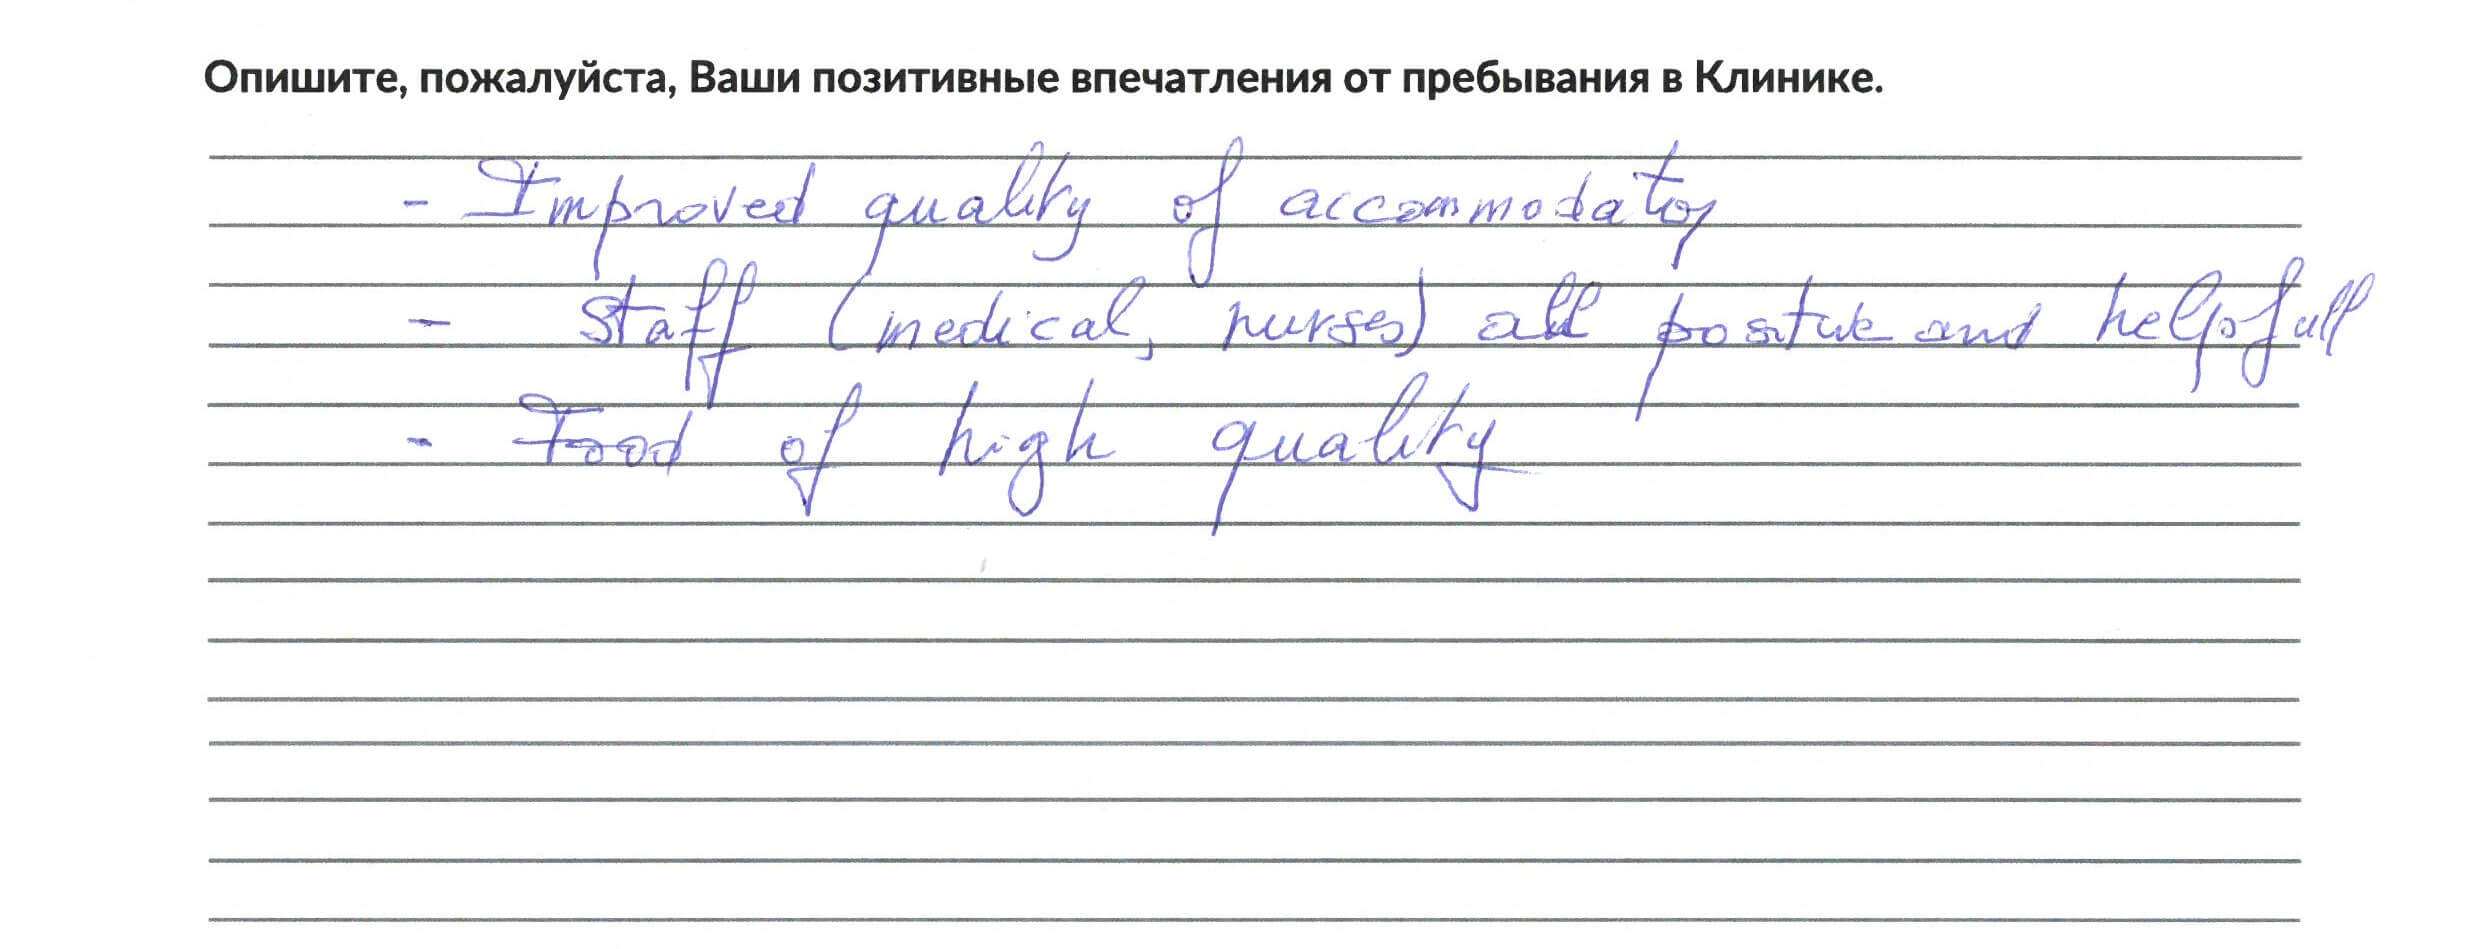 Опишите, пожалуйста, Ваши позитивные впечатления от пребывания в Клинике.
- Improved quality of accommodation
- Staff (medical, nurses) all positive and helpfull
- Food of high quality